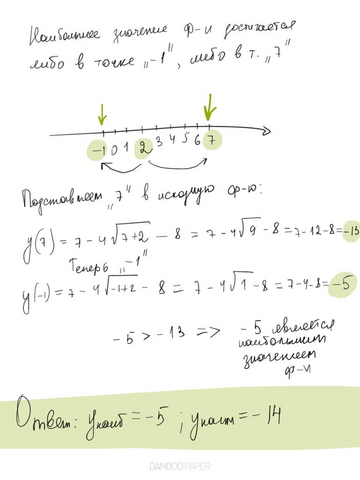 Наибольшее значение ф-и достигается
либо в точке „-1", либо в т. „7"
-1 0 1 2 3 4 5 6 7
Подставляем „7" в исходную ф-ю:
y(7) = 7 - 4√7+2 - 8 = 7 - 4√9 - 8 = 7-12-8 = -13
Теперь „-1"
y(-1) = 7 - 4√-1+2 - 8 = 7 - 4√1 - 8 = 7-4-8 = -5
-5 > -13 => -5 является
наибольшим
значением
ф-и
Ответ: yнаиб = -5 ; yнаим = -14
BAMBOO PAPER